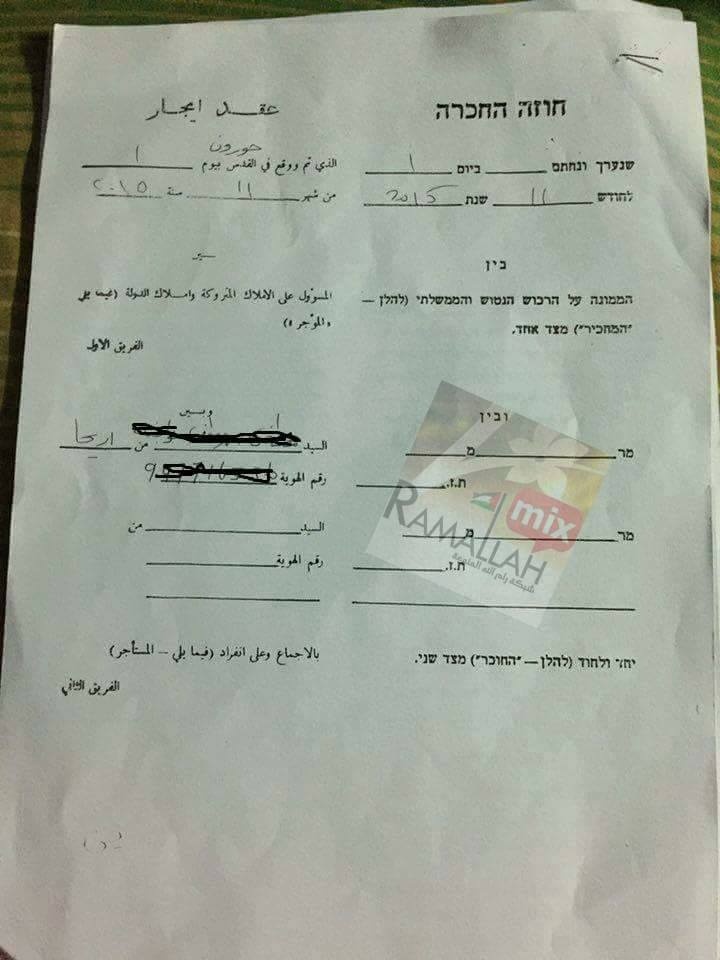 חוזה החכרה
عقد ايجار
שנערך ונחתם ביום 1
الذي تم ووقع في القدس يوم 1
حورون
לחודש 11 שנת 2015
من شهر 11 سنة ٢٠١٥
בין
بين
הממונה על הרכוש הנטוש והממשלתי (להלן –
"המחכיר") מצד אחד.
المسؤول على الاملاك المتروكة واملاك الدولة (فيما يلي
«المؤجر»)
الفريق الاول
ובין
وبين
מר מ
السيد من اريحا
ת.ז.
رقم الهوية
מר מ
السيد من
ת.ז.
رقم الهوية
יחד ולחוד (להלן – "החוכר") מצד שני.
بالاجماع وعلى انفراد (فيما يلي – المستأجر)
الفريق الثاني
RAMALLAH
mix
شبكة رام الله